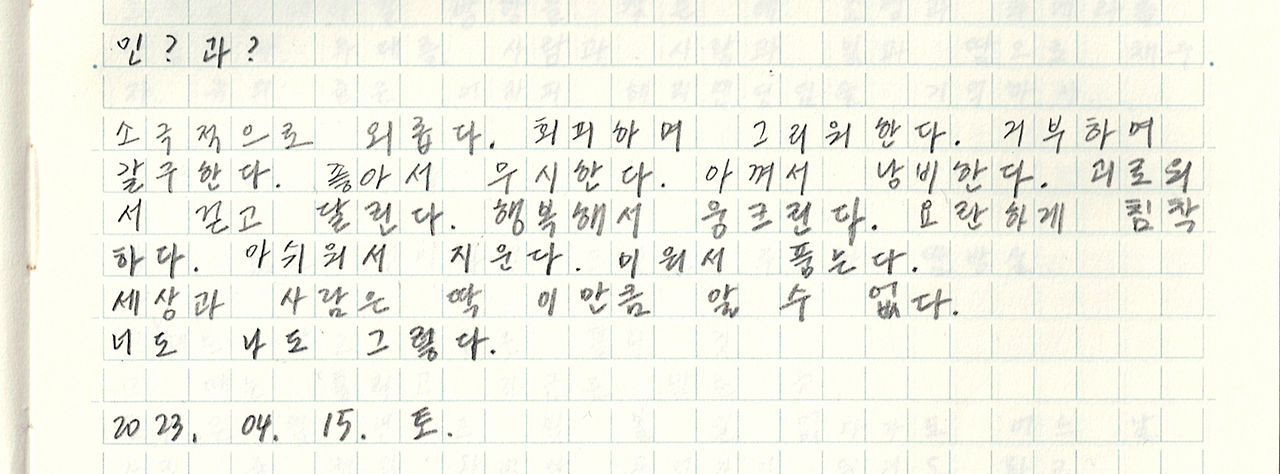 인? 과?
소극적으로 외롭다. 회피하며 그리워한다. 거부하며
갈구한다. 좋아서 무시한다. 아껴서 낭비한다. 괴로워
서 걷고 달린다. 행복해서 웅크린다. 요란하게 침착
하다. 아쉬워서 지운다. 미워서 품는다.
세상과 사람은 딱 이만큼 알 수 없다.
너도 나도 그렇다.
2023. 04. 15. 토.